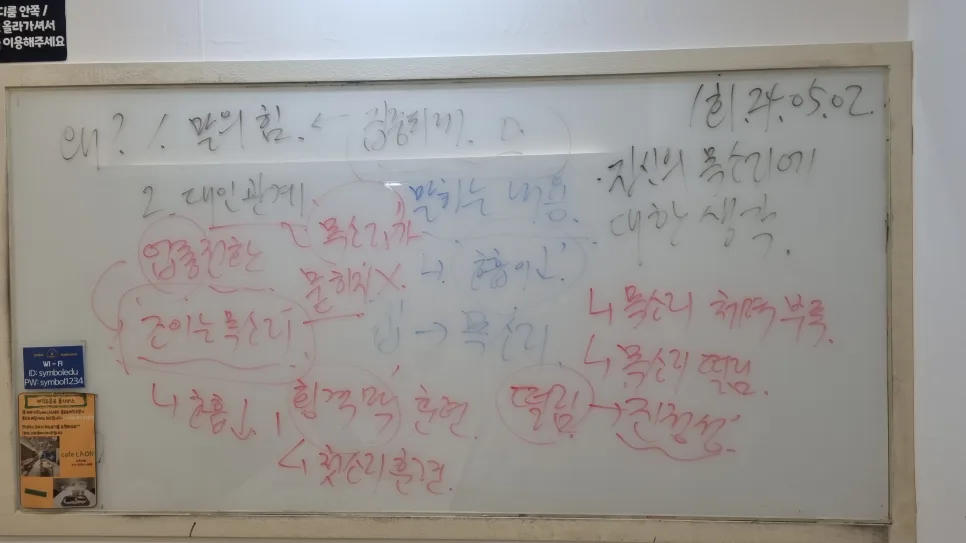 디룸 안쪽 /
올라가셔서
이용해주세요
1회.24.05.02.
왜? 1. 말의 힘. ←
2. 대인관계.
말하는 내용.
· 자신의 목소리에
대한 생각.
목소리가
묻히지 X.
ㄴ. 호흡이다.
조이는 목소리
→ 목소리
ㄴ 목소리 체력 부족.
ㄴ 목소리 떨림
ㄴ 호흡 ↓, 횡격막 훈련.
떨림 → 진정성.
ㄴ 첫소리 훈련.
WI-FI
ID: symboledu
PW: symbol1234
cafe LAON